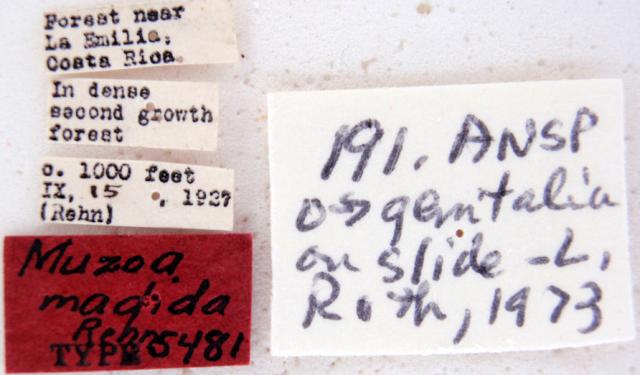 Forest near
La Emilia,
Costa Rica.
In dense
second growth
forest
c. 1000 feet
IX, 15, 1927
(Rehn)
Muzoa
madida
Rehn
TYPE 5481
191. ANSP
genitalia
on slide - L.
Roth, 1973